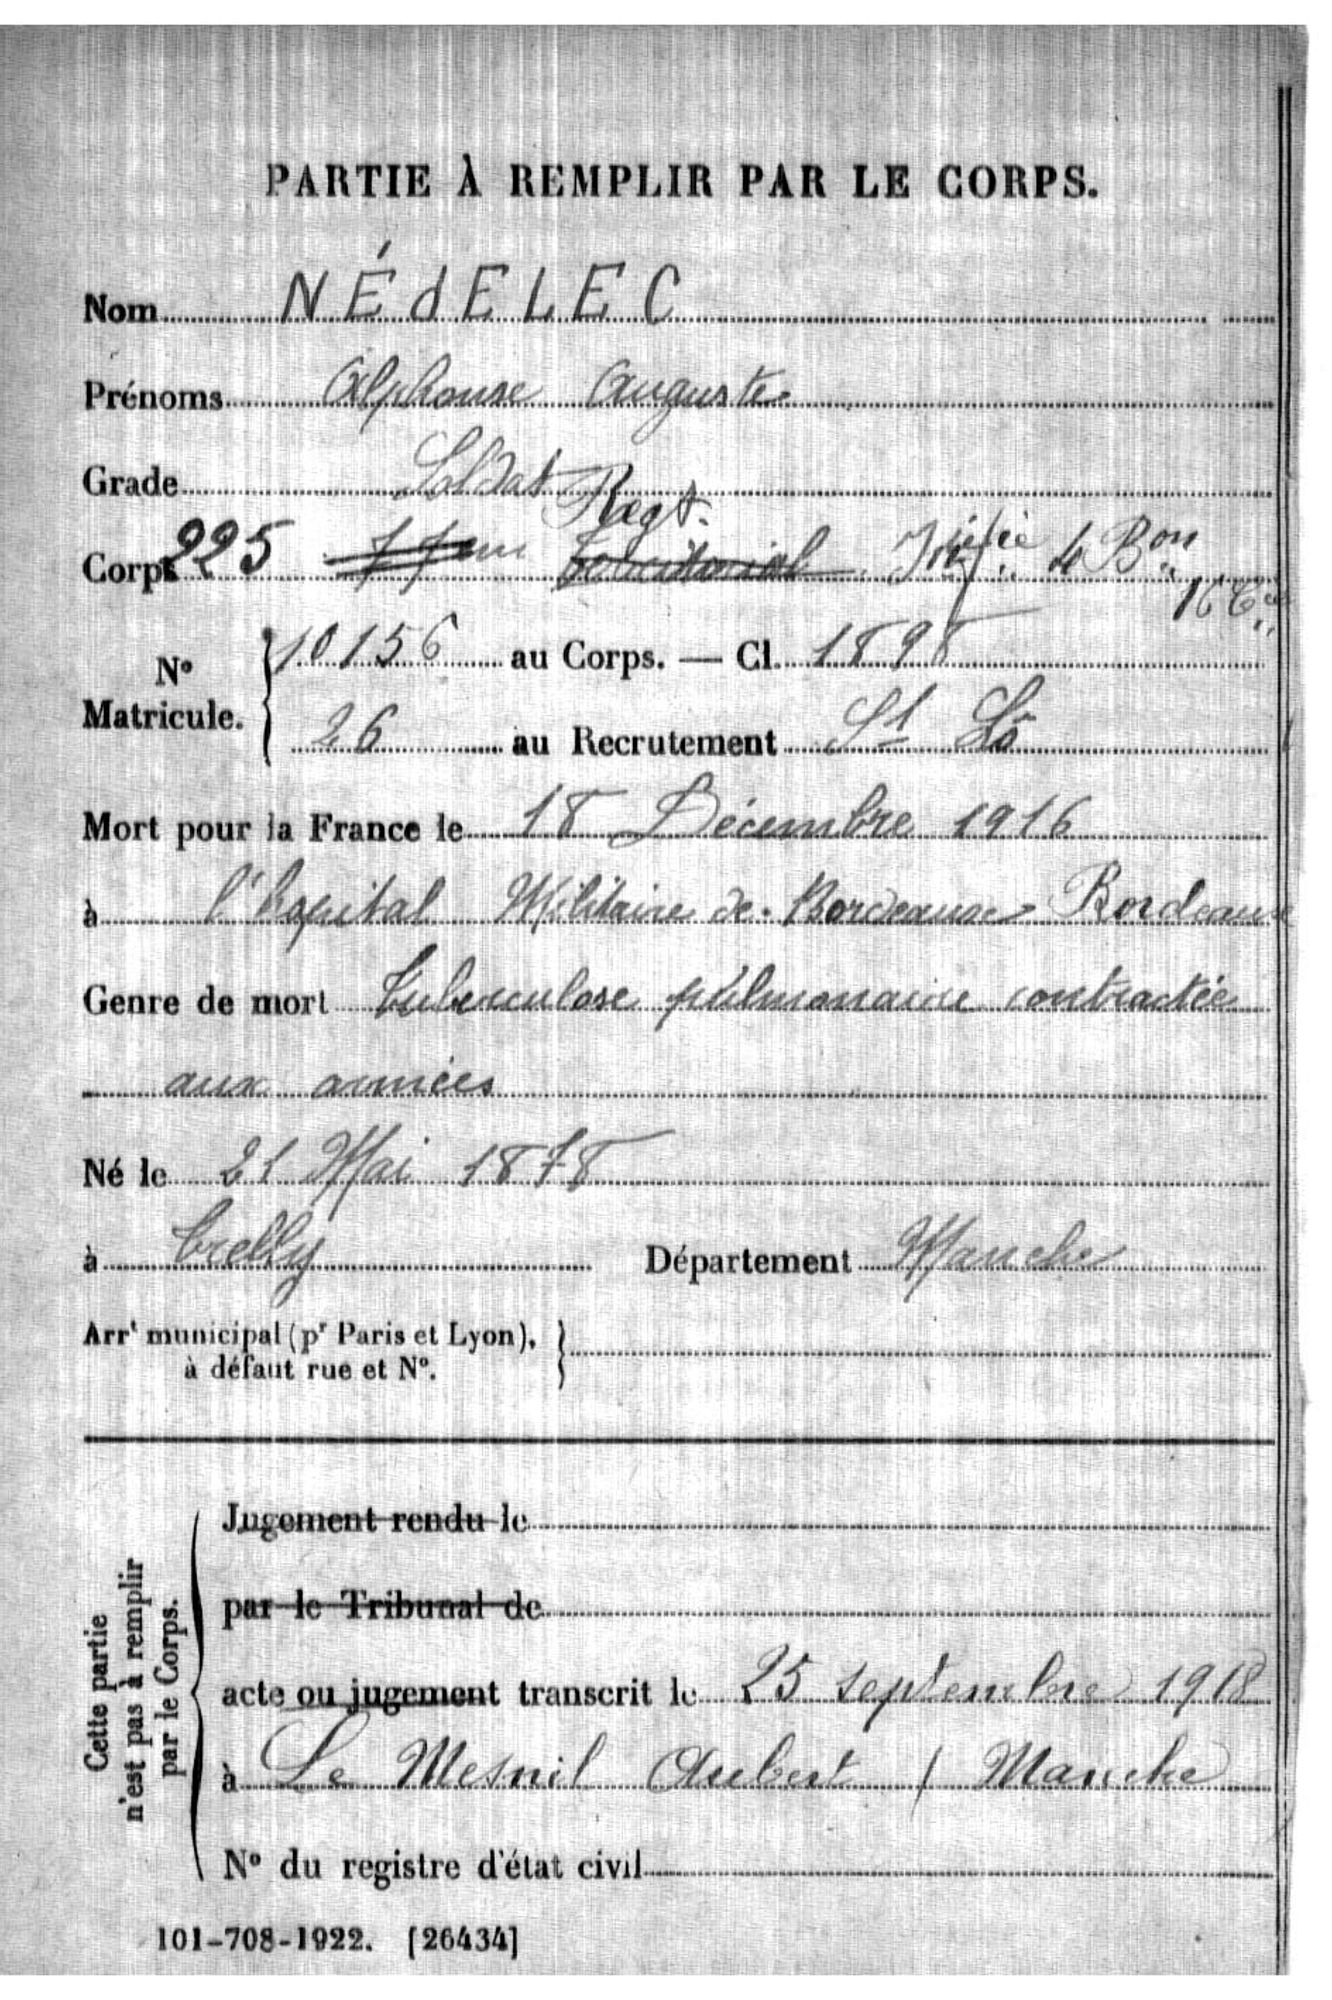 PARTIE À REMPLIR PAR LE CORPS.
Nom NÉdELEC
Prénoms Alphonse Auguste
Grade Soldat
Regt.
Corps 225 Territorial Infie 4 Bon
16 Cie
10156 au Corps. — Cl. 1898
N° Matricule.
26 au Recrutement St Lô
Mort pour la France le 18 Décembre 1916
à l'hopital Militaire de Bordeaux Bordeaux
Genre de mort Tuberculose pulmonaire contractée
aux armées
Né le 21 Mai 1878
à Trelly Département Manche
Arrt municipal (pr Paris et Lyon),
à défaut rue et N°.
Cette partie
n'est pas à remplir
par le Corps.
Jugement rendu le
par le Tribunal de
acte ou jugement transcrit le 25 septembre 1918
à Le Mesnil Aubert / Manche
N° du registre d'état civil
101-708-1922. [26434]